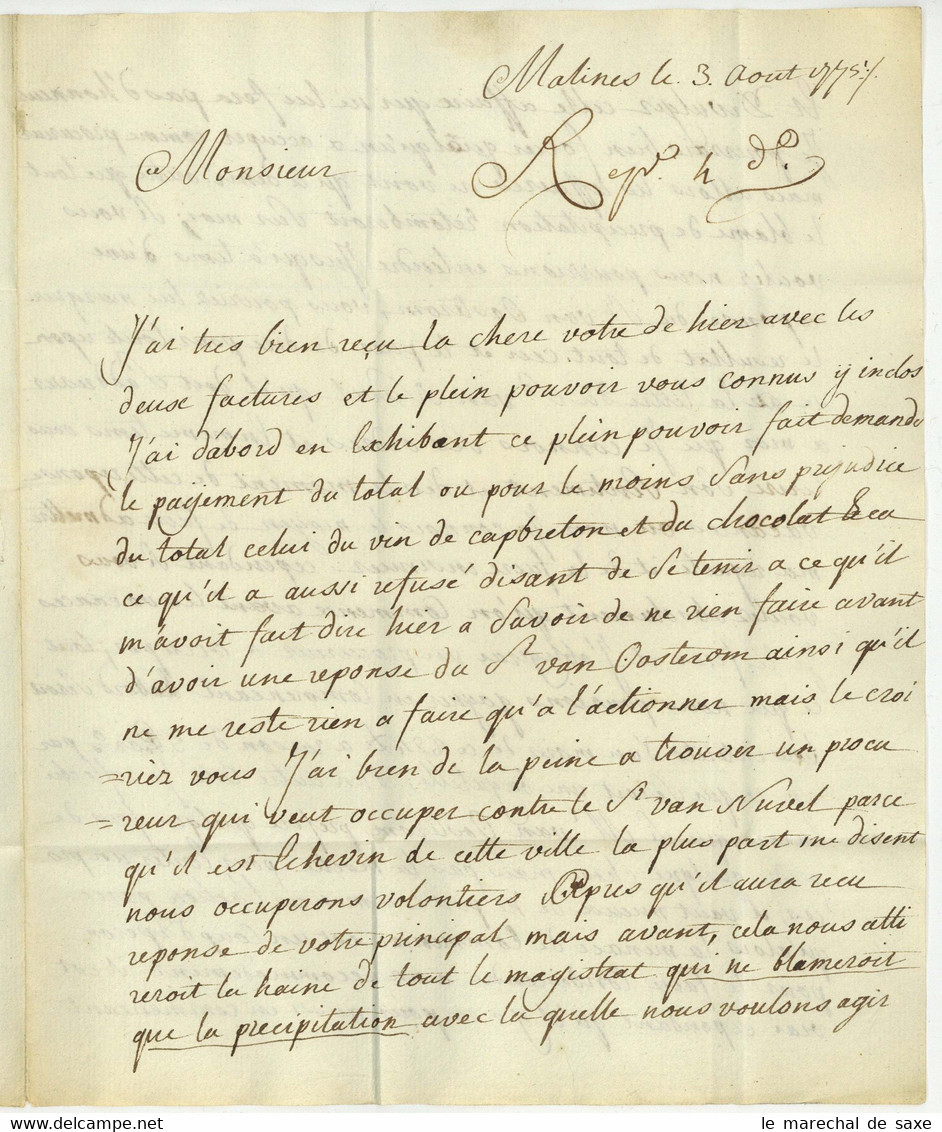 Malines le 3. Aout 1775 /.
Monsieur
Rep.º 4 dº.
J'ai tres bien reçu la chere votre de hier avec les
deux factures et le plein pouvoir vous connus ÿ inclos
J'ai d'abord en Exhibant ce plein pouvoir fait demander
le paÿement du total ou pour le moins Sans prejudice
du total celui du vin de capbreton et du chocolat
ce qu'il a aussi refusé disant de Se tenir a ce qu'il
m'avoit fait dire hier a Savoir de ne rien faire avant
d'avoir une reponse du Sr van Oosterom ainsi qu'il
ne me reste rien a faire qu'a l'actionner mais le croi
=riez vous J'ai bien de la peine a trouver un procu
=reur qui veut occuper contre le Sr van Nuvel parce
qu'il est Echevin de cette ville la plus part me disent
nous occuperons volontiers apres qu'il aura recu
reponse de votre principal mais avant, cela nous atti
reroit la haine de tout le magistrat qui ne blameroit
que la precipitation avec la quelle nous voulons agir
le marechal de saxe